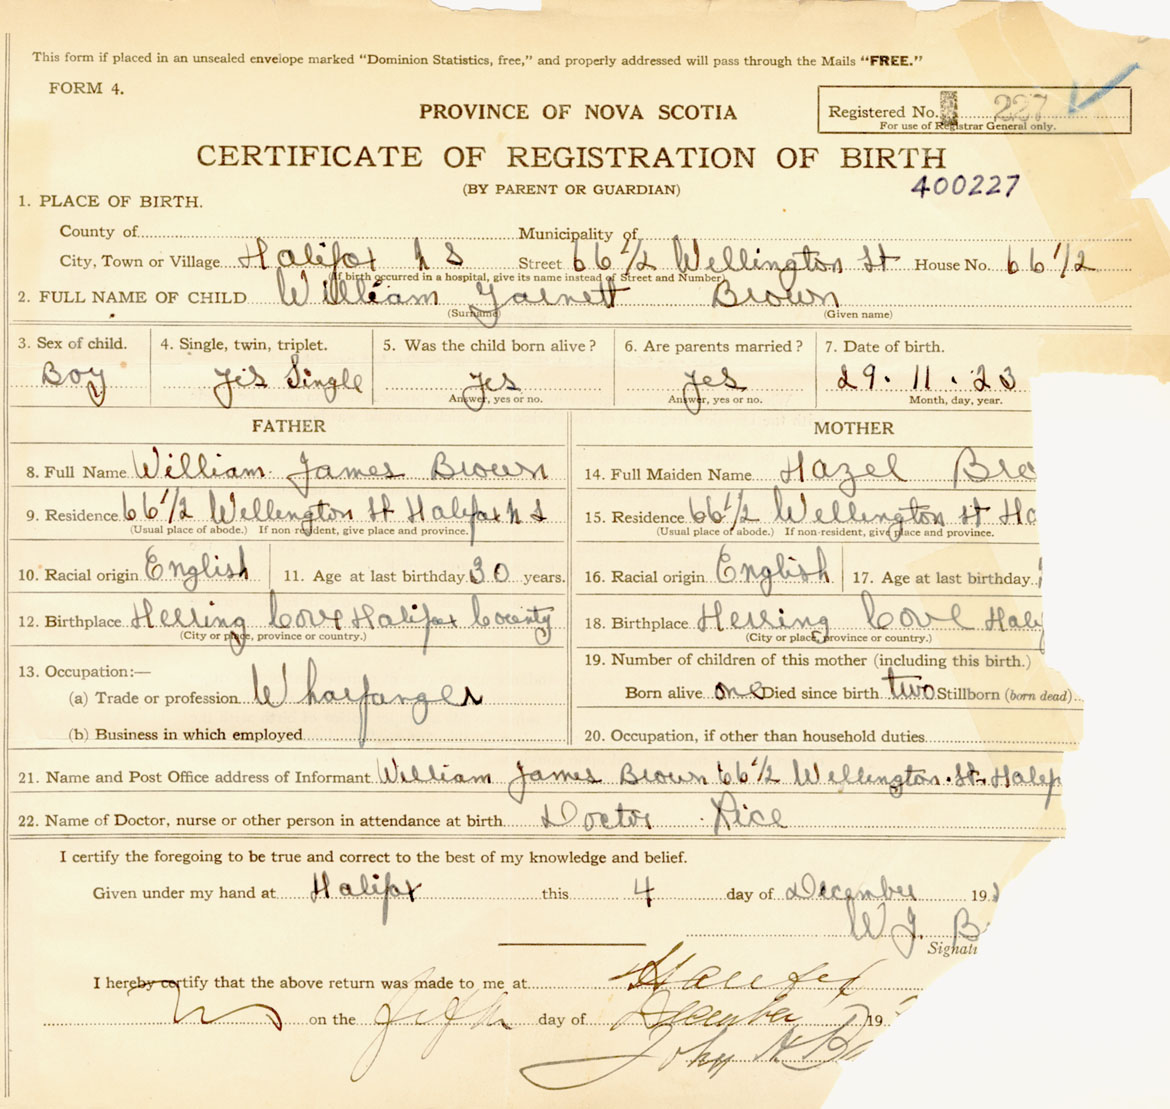 This form if placed in an unsealed envelope marked "Dominion Statistics, free," and properly addressed will pass through the Mails "FREE."
FORM 4.
PROVINCE OF NOVA SCOTIA
Registered No. 227
For use of Registrar General only.
CERTIFICATE OF REGISTRATION OF BIRTH
400227
(BY PARENT OR GUARDIAN)
1. PLACE OF BIRTH.
County of Municipality of
City, Town or Village Halifax N S Street 66 1/2 Wellington St House No. 66 1/2
(If birth occurred in a hospital, give its name instead of Street and Number)
2. FULL NAME OF CHILD William Garnett Brown
(Surname) (Given name)
3. Sex of child. 4. Single, twin, triplet. 5. Was the child born alive? 6. Are parents married? 7. Date of birth.
Boy yes Single yes yes 29. 11. 23
Answer, yes or no. Answer, yes or no. Month, day, year.
FATHER MOTHER
8. Full Name William James Brown 14. Full Maiden Name Hazel
9. Residence 66 1/2 Wellington St Halifax N S 15. Residence 66 1/2 Wellington St
(Usual place of abode.) If non resident, give place and province. (Usual place of abode.) If non-resident, give place and province.
10. Racial origin English 11. Age at last birthday 30 years. 16. Racial origin English 17. Age at last birthday
12. Birthplace Herring Cove Halifax County 18. Birthplace Herring Cove
(City or place, province or country.) (City or place, province or country.)
13. Occupation:— 19. Number of children of this mother (including this birth.)
(a) Trade or profession Wharfanger Born alive one Died since birth two Stillborn (born dead)
(b) Business in which employed 20. Occupation, if other than household duties
21. Name and Post Office address of Informant William James Brown 66 1/2 Wellington St
22. Name of Doctor, nurse or other person in attendance at birth Doctor Rice
I certify the foregoing to be true and correct to the best of my knowledge and belief.
Given under my hand at Halifax this 4 day of December 19
W J
I hereby certify that the above return was made to me at Halifax
on the day of December 19
John